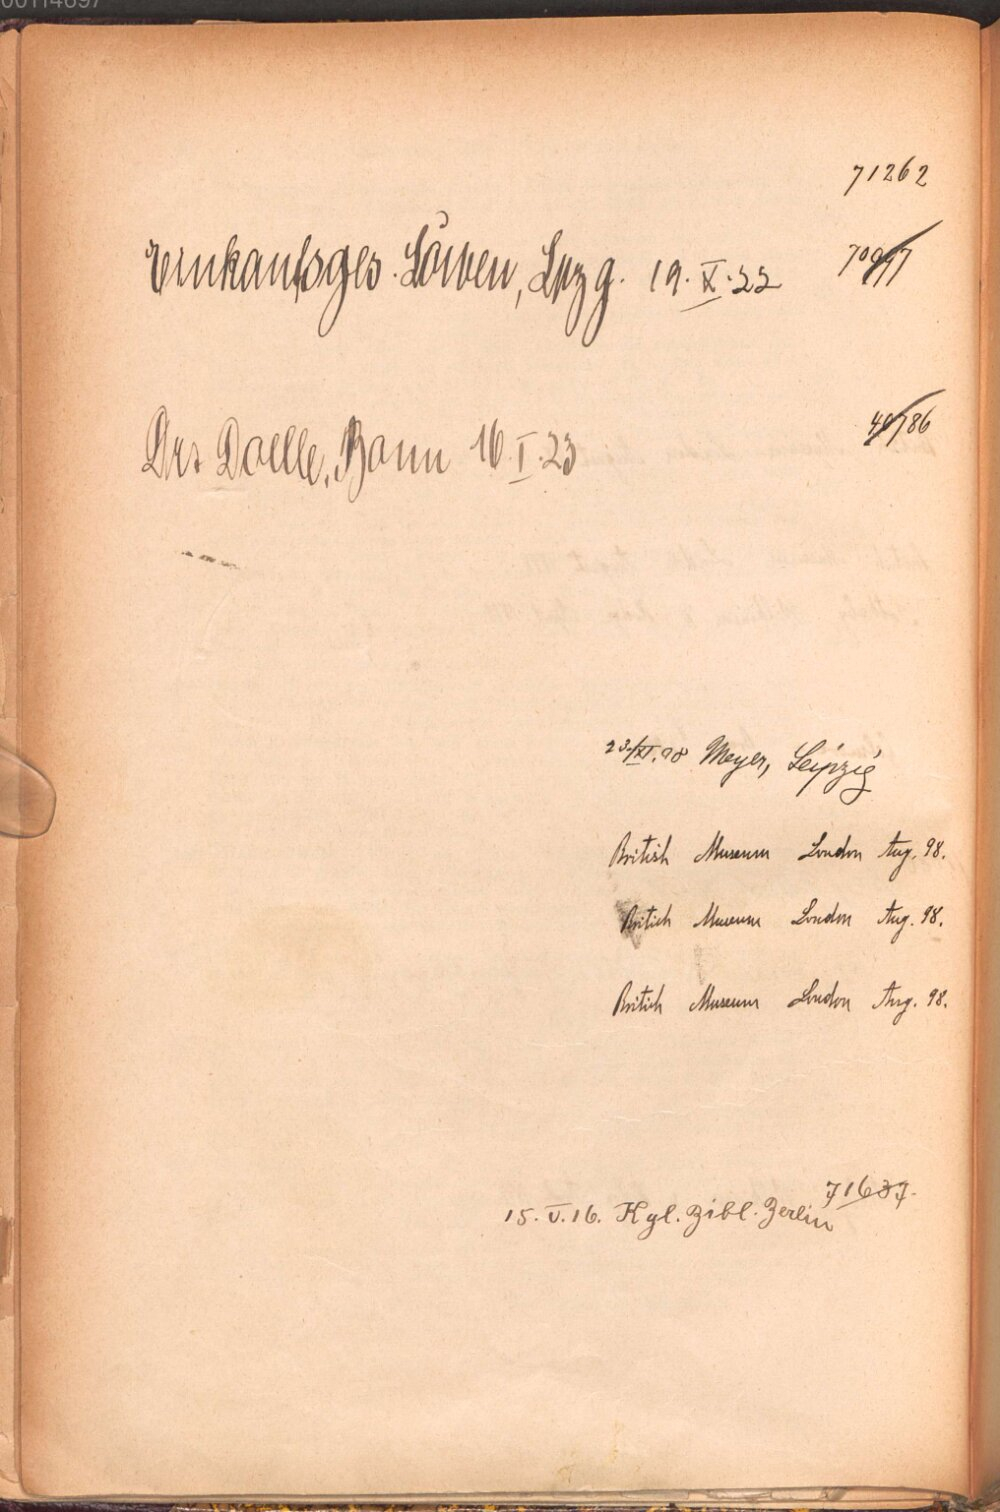 00114697
71262
Einkaufsges. Löwen, Lpzg. 19. X. 22
Drs Doelle, Bonn 16. I. 23
23/XI.98 Meyer, Leipzig
British Museum London Aug. 98.
British Museum London Aug. 98.
British Museum London Aug. 98.
71637.
15. V. 16. Kgl. Bibl. Berlin